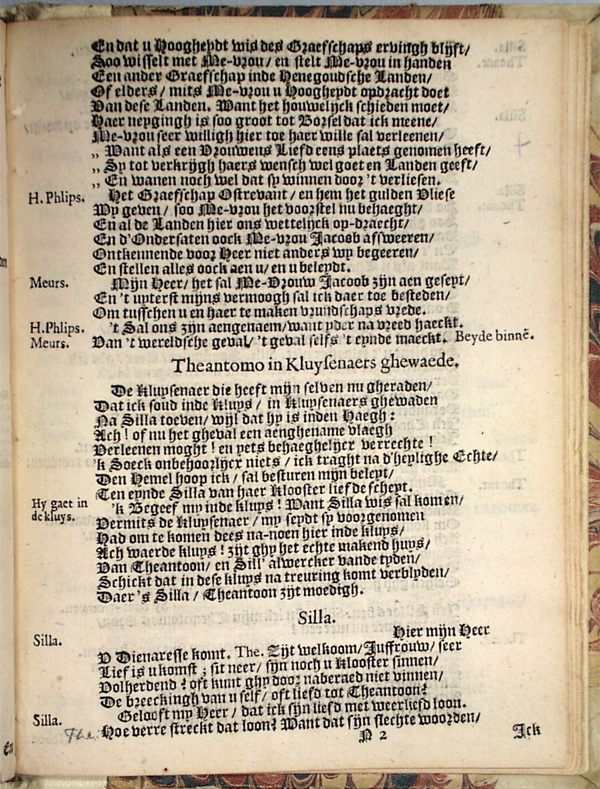 En dat u Hoogheydt wis des Graefschaps ervingh blijft/
Soo wisselt met Me-vrou/ en stelt Me-vrou in handen
Een ander Graefschap inde Henegoudsche Landen/
Of elders/ mits Me-vrou u Hoogheydt opdracht doet
Van dese Landen. Want het houwelijck schieden moet/
Haer neygingh is soo groot tot Borsel dat ick meene/
Me-vrou seer willigh hier toe haer wille sal verleenen/
„ Want als een Vrouwens Liefd eens plaets genomen heeft/
„ Sy tot verkrijgh haers wensch wel goet en Landen geeft/
„ En wanen noch wel dat sy winnen door 't verliesen.
H. Phlips. Het Graefschap Ostrevant/ en hem het gulden Vliese
Wy geven/ soo Me-vrou het voorstel nu behaeght/
En al de Landen hier ons wettelijck op-draecht/
En d'Ondersaten oock Me-vrou Jacoob afsweeren/
Ontkennende voor Heer niet anders wy begeeren/
En stellen alles oock aen u/ en u beleydt.
Meurs. Mijn Heer/ het sal Me-Vrouw Jacoob zijn aen geseyt/
En 't uyterst mijns vermoogh sal ick daer toe besteden/
Om tusschen u en haer te maken vrundschaps vrede.
H. Phlips. 't Sal ons zijn aengenaem/ want yder na vreed haeckt.
Meurs. Van 't wereldsche geval/ 't geval selfs 't eynde maeckt. Beyde binnē.
Theantomo in Kluysenaers ghewaede.
De Kluysenaer die heeft mijn selven nu gheraden/
Dat ick soud inde Kluys/ in Kluysenaers ghewaden
Na Silla toeven/ wijl dat hy is inden Haegh:
Ach! of nu het gheval een aenghename vlaegh
Verleenen moght! en yets behaeghelijcx verrechte!
'k Soeck onbehoorlijcx niets/ ick traght na d'heylighe Echte/
Den Hemel hoop ick/ sal besturen mijn beleyt/
Ten eynde Silla van haer Klooster liefde scheyt.
Hy gaet in de kluys. 'k Begeef my inde kluys! Want Silla wis sal komen/
Vermits de Kluysenaer/ my seydt sy voorgenomen
Had om te komen dees na-noen hier inde kluys/
Ach waerde kluys! zijt ghy het echte makend huys/
Van Theantoon/ en Sill' alwercker vande tyden/
Schickt dat in dese kluys na treuring komt verblyden/
Daer's Silla/ Theantoon zijt moedigh.
Silla.
Silla. Hier mijn Heer
U Dienaresse komt. The. Zijt welkoom/ Juffrouw/ seer
Lief is u komst; sit neer/ sijn noch u Klooster sinnen/
Volherdend? oft kunt ghy door naberaed niet vinnen/
De breeckingh van u self/ oft liefd tot Theantoon?
Silla. Gelooft my Heer/ dat ick sijn liefd met weerliefd loon.
The. Hoe verre streckt dat loon? Want dat sijn slechte woorden/
N 2 Ick